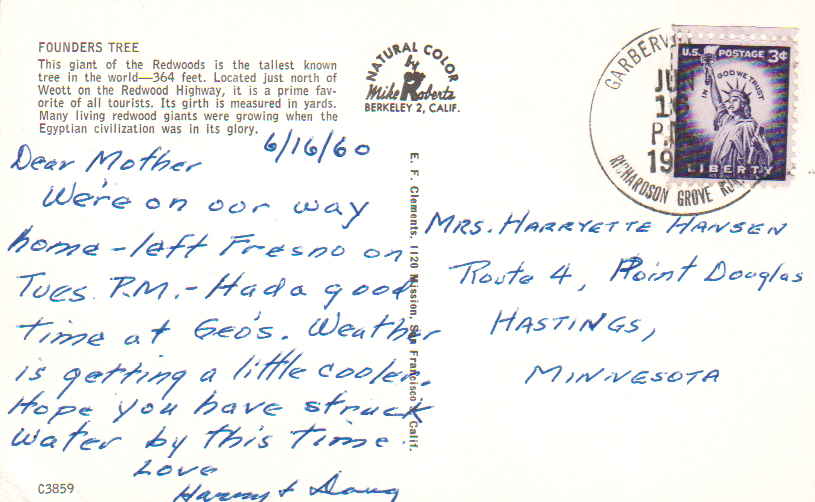 FOUNDERS TREE
This giant of the Redwoods is the tallest known
tree in the world—364 feet. Located just north of
Weott on the Redwood Highway, it is a prime fav-
orite of all tourists. Its girth is measured in yards.
Many living redwood giants were growing when the
Egyptian civilization was in its glory.
NATURAL COLOR
by
Mike Roberts
BERKELEY 2, CALIF.
GARBERV
JUN
16
P.M.
19
RICHARDSON GROVE RUR
U.S. POSTAGE 3¢
IN GOD WE TRUST
LIBERTY
6/16/60
Dear Mother
We're on our way
home - left Fresno on
Tues. P.M. - Had a good
time at Geo's. Weather
is getting a little cooler.
Hope you have struck
water by this time.
Love
Harry & Doug
E. F. Clements, 1120 Mission, San Francisco, Calif.
MRS. HARRYETTE HANSEN
Route 4, Point Douglas
HASTINGS,
MINNESOTA
C3859